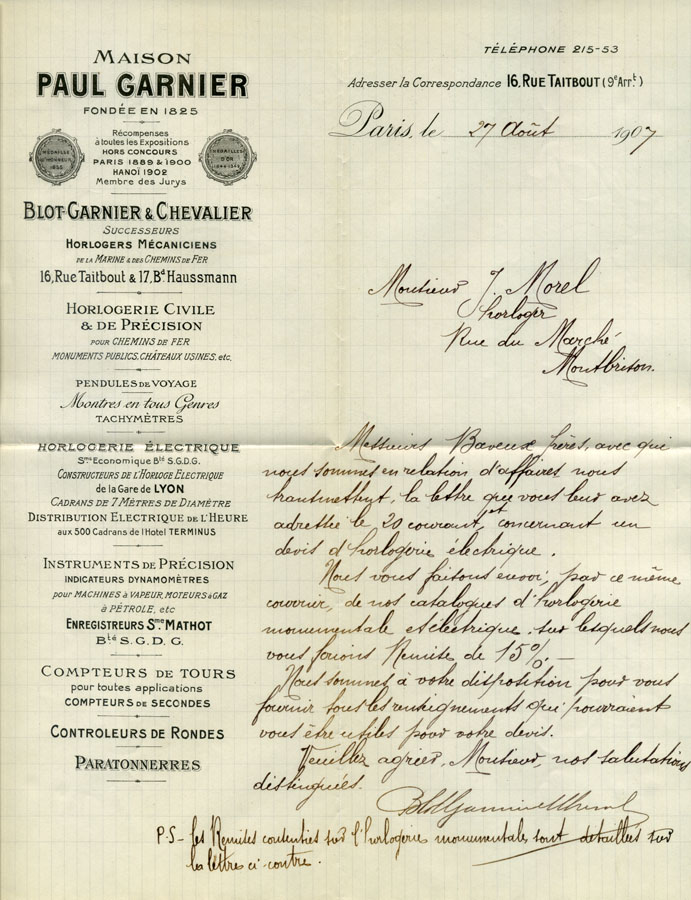 MAISON
PAUL GARNIER
FONDÉE EN 1825
Récompenses
à toutes les Expositions
HORS CONCOURS
PARIS 1889 & 1900
HANOÏ 1902
Membre des Jurys
BLOT-GARNIER & CHEVALIER
SUCCESSEURS
HORLOGERS MÉCANICIENS
DE LA MARINE & DES CHEMINS DE FER
16, Rue Taitbout & 17, Bd Haussmann
HORLOGERIE CIVILE
& DE PRÉCISION
POUR CHEMINS DE FER
MONUMENTS PUBLICS, CHÂTEAUX USINES, etc.
PENDULES DE VOYAGE
Montres en tous Genres
TACHYMÈTRES
HORLOGERIE ÉLECTRIQUE
Sme Economique Bté S.G.D.G.
CONSTRUCTEURS DE L'HORLOGE ELECTRIQUE
de la Gare de LYON
CADRANS DE 7 MÈTRES DE DIAMÈTRE
DISTRIBUTION ELECTRIQUE DE L'HEURE
aux 500 Cadrans de l'Hotel TERMINUS
INSTRUMENTS DE PRÉCISION
INDICATEURS DYNAMOMÈTRES
pour MACHINES À VAPEUR, MOTEURS à GAZ
à PÉTROLE, etc
ENREGISTREURS Sme MATHOT
Bté S.G.D.G.
COMPTEURS DE TOURS
pour toutes applications
COMPTEURS DE SECONDES
CONTROLEURS DE RONDES
PARATONNERRES
TÉLÉPHONE 215-53
Adresser la Correspondance 16, RUE TAITBOUT (9e Arrt)
Paris, le 27 Août 1907
Monsieur J. Morel
horloger
Rue du Marché
Montbrison.
Messieurs Baveux frères, avec qui
nous sommes en relation d'affaires nous
transmettent, la lettre que vous leur avez
adressée le 20 courant, et concernant un
devis d'horlogerie électrique.
Nous vous faisons envoi, par ce même
courrier, de nos catalogues d'horlogerie
monumentale et électrique, sur lesquels nous
vous ferions Remise de 15%.-
Nous sommes à votre disposition pour vous
fournir tous les renseignements qui pourraient
vous être utiles pour votre devis.
Veuillez agréer, Monsieur, nos salutations
distinguées.
P.S- les Remises consenties sur l'horlogerie monumentale sont détaillées sur
la lettre ci contre.